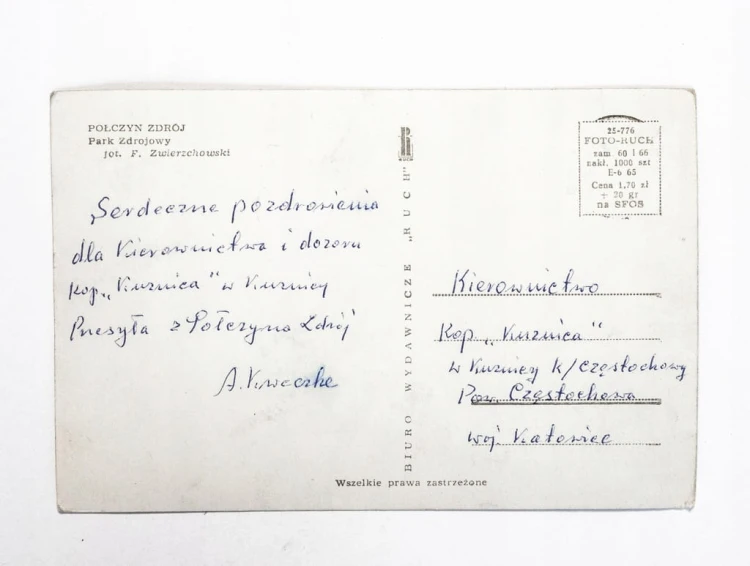 POŁCZYN ZDRÓJ
Park Zdrojowy
fot. F. Zwierzchowski
Serdeczne pozdrowienia
dla Kierownictwa i dozoru
kop. „Kuznica" w Kuznicy
Przesyła z Połczyna Zdrój
A.
BIURO WYDAWNICZE „RUCH"
RUCH
25-776
FOTO-RUCH
zam 60 I 66
nakł. 1000 szt
E-b 65
Cena 1,70 zł
+ 20 gr
na SFOS
Kierownictwo
Kop „Kuznica"
w Kuznicy K/Częstochowy
Pow. Częstochowa
woj. Katowice
Wszelkie prawa zastrzeżone